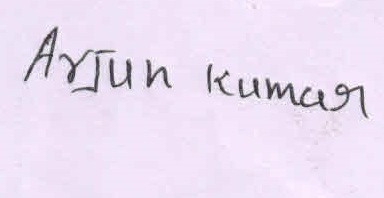 Arjun Kumar